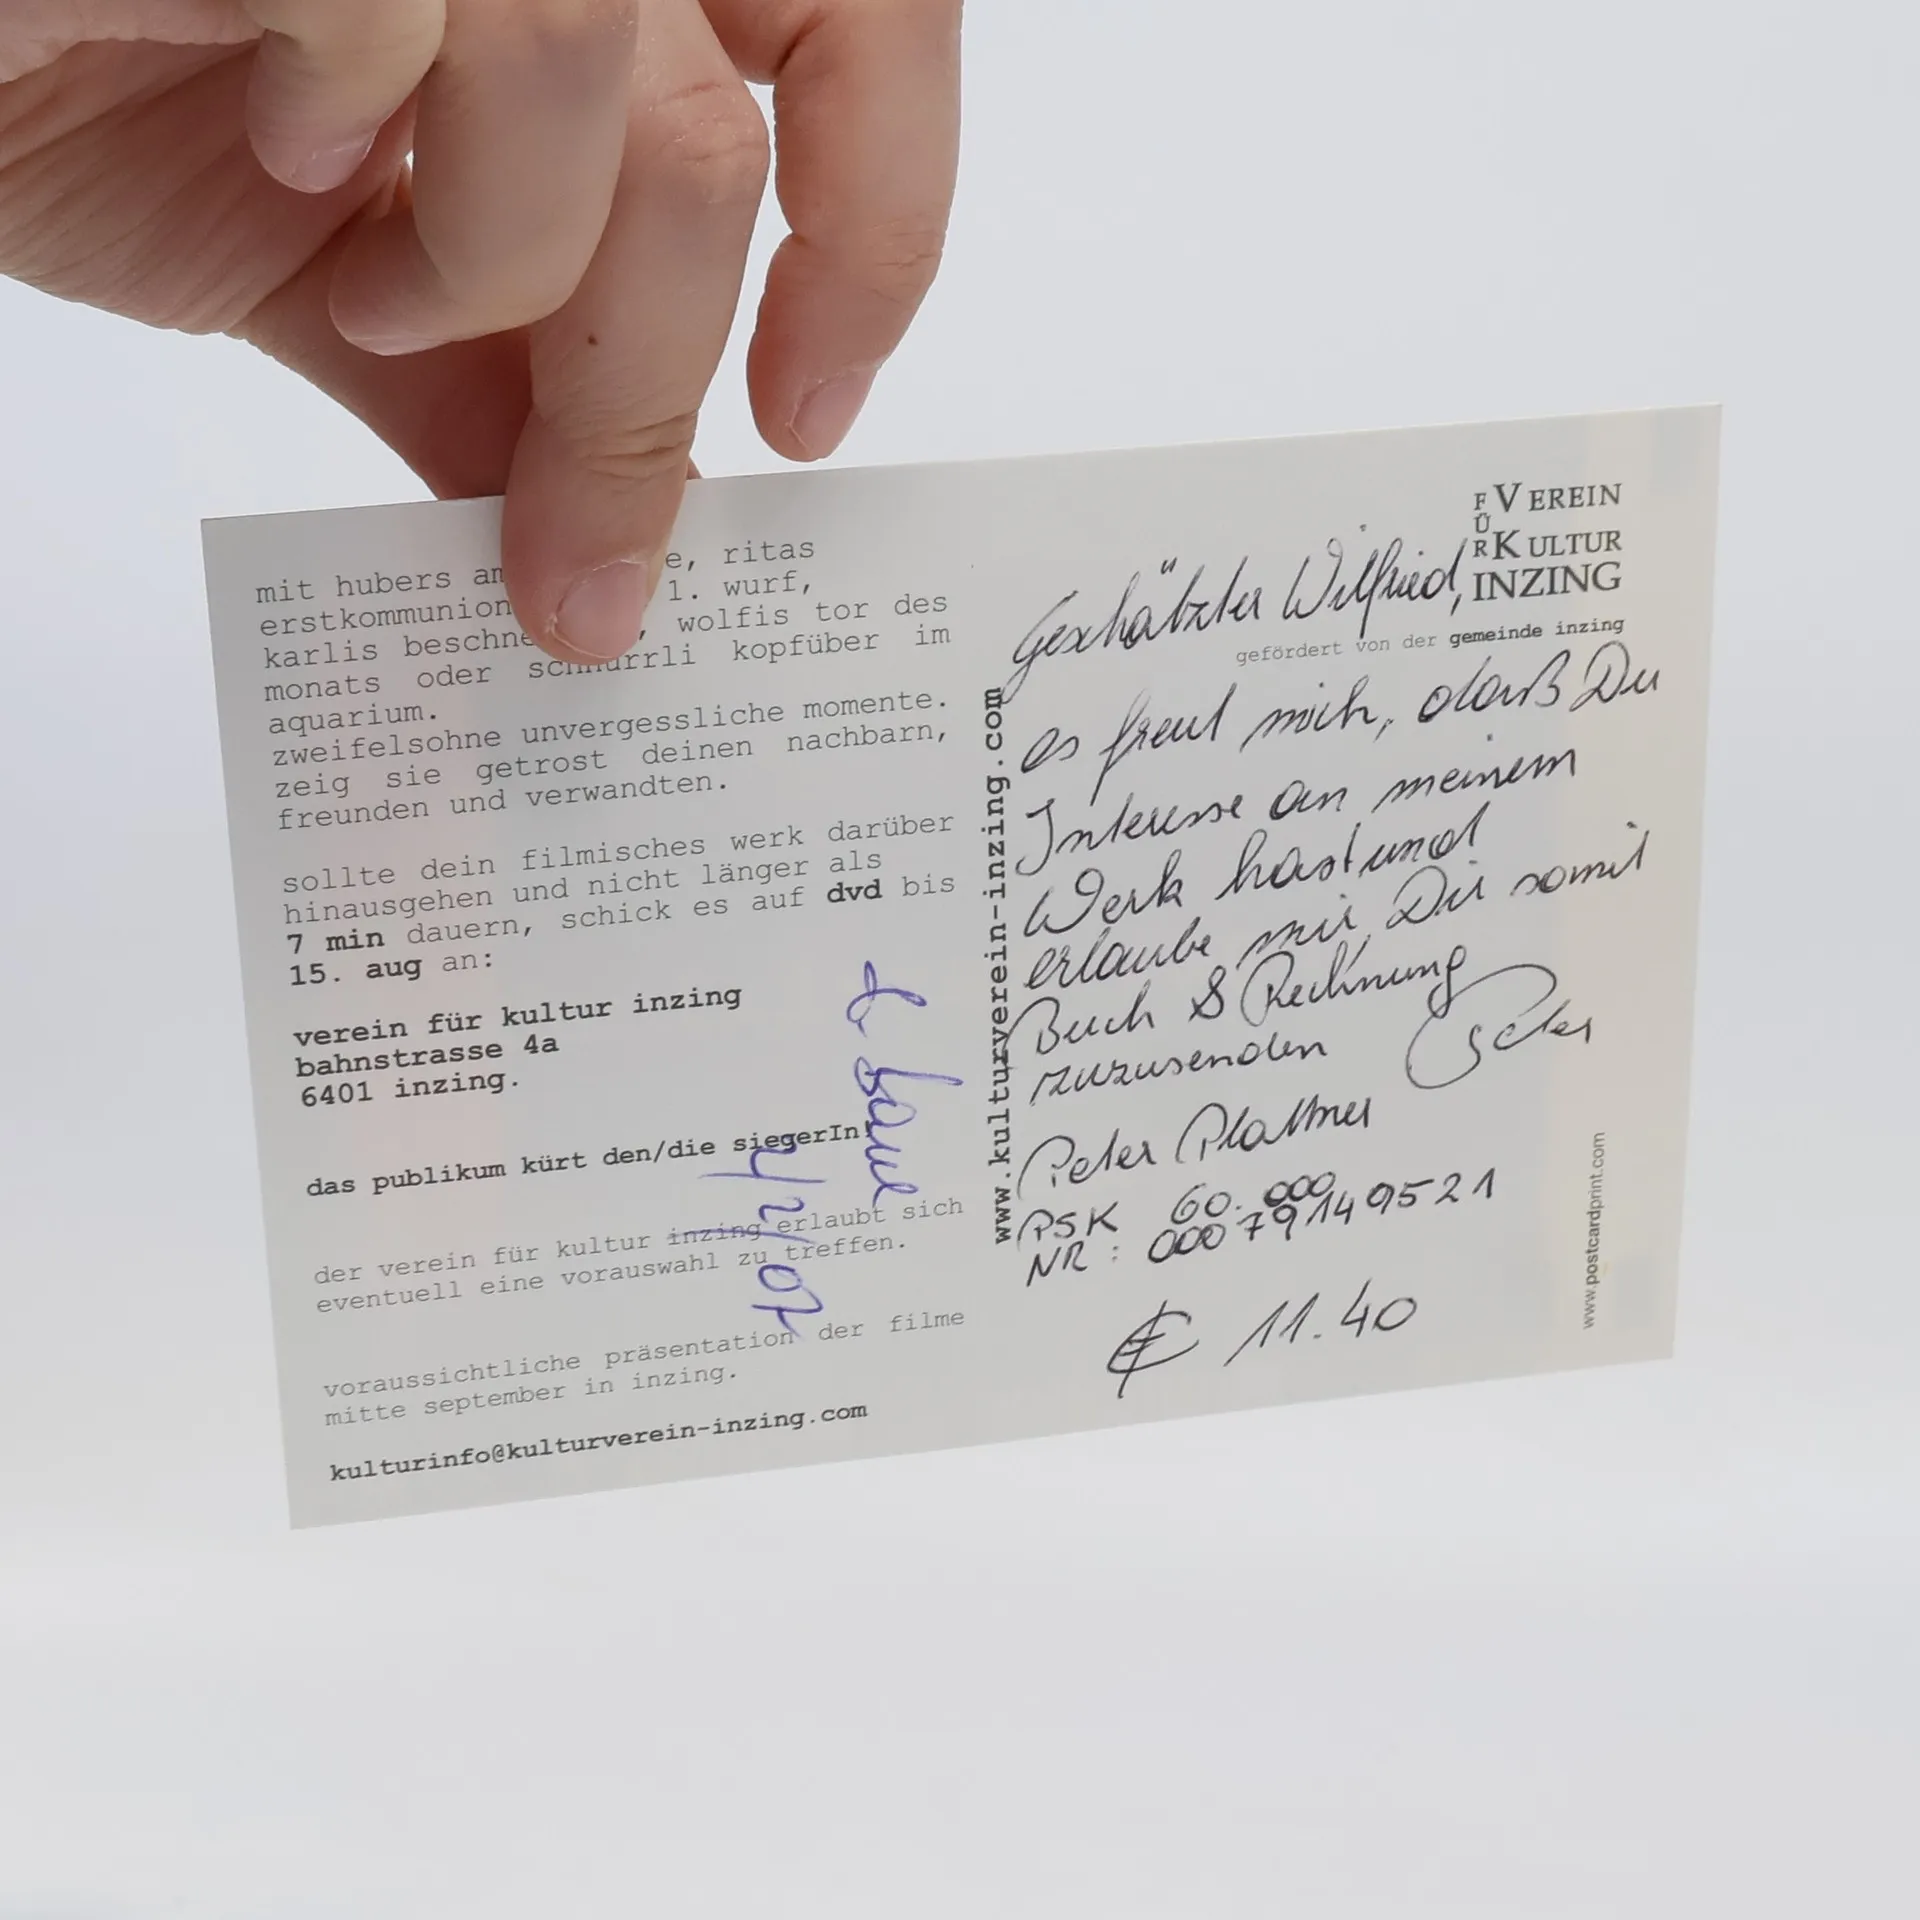 mit hubers an e, ritas
erstkommunion 1. wurf,
karlis beschne , wolfis tor des
monats oder schnurrli kopfüber im
aquarium.
zweifelsohne unvergessliche momente.
zeig sie getrost deinen nachbarn,
freunden und verwandten.
sollte dein filmisches werk darüber
hinausgehen und nicht länger als
7 min dauern, schick es auf dvd bis
15. aug an:
verein für kultur inzing
bahnstrasse 4a
6401 inzing.
das publikum kürt den/die siegerIn!
der verein für kultur inzing erlaubt sich
eventuell eine vorauswahl zu treffen.
voraussichtliche präsentation der filme
mitte september in inzing.
kulturinfo@kulturverein-inzing.com
www.kulturverein-inzing.com
VEREIN
FÜR KULTUR
INZING
gefördert von der gemeinde inzing
Geschätzter Wilfried,
es freut mich, daß Du
Interesse an meinem
Werk hast und
erlaube mir, Dir somit
Buch & Rechnung
zuzusenden Peter
Peter Plattner
PSK 60.000
NR: 00079149521
€ 11.40
www.postcardprint.com